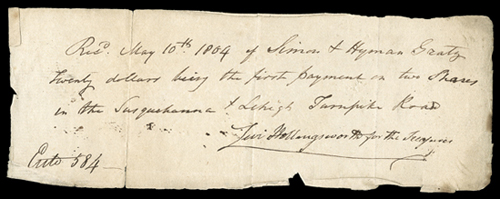 Recd. May 10th 1804 of Simon & Hyman Gratz
twenty dollars being the first payment on two shares
in the Susquehanna & Lehigh Turnpike Road
Levi Hollingsworth for the Treasurer
Entd 584